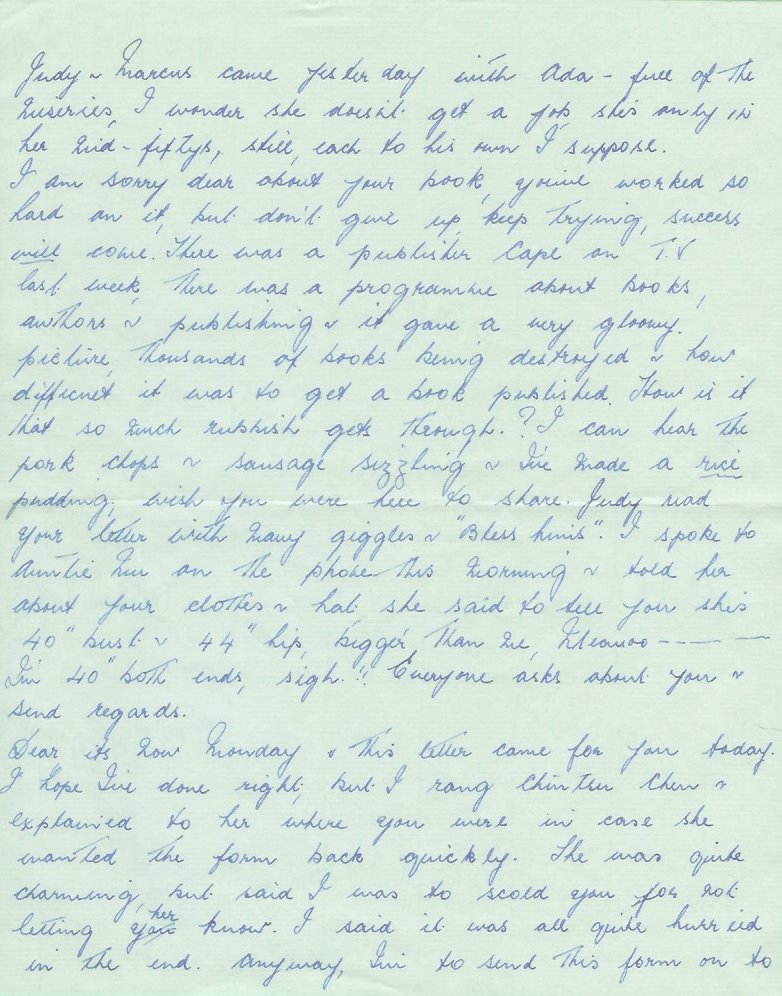 Judy ~ Marcus came yesterday with Ada - full of the
miseries, I wonder she doesn't get a job she's only in
her mid-fiftys, still, each to his own I suppose.
I am sorry dear about your book, you've worked so
hard on it, but don't give up, keep trying, success
will come. There was a publisher Cape on T.V
last week, there was a programme about books,
authors ~ publishing ~ it gave a very gloomy
picture, thousands of books being destroyed ~ how
difficult it was to get a book published. How is it
that so much rubbish gets through.? I can hear the
pork chops ~ sausage sizzling ~ I've made a rice
pudding, wish you were here to share. Judy read
your letter with many giggles ~ "Bless him". I spoke to
Auntie on the phone this morning ~ told her
about your clothes ~ hat she said to tell you she's
40" bust ~ 44" hip, bigger than me, - - -
I'm 40" both ends, sigh.!! Everyone asks about you ~
send regards.
Dear its now Monday ~ this letter came for you today.
I hope I've done right, but I rang Chintsu Chen ~
explained to her where you were in case she
wanted the form back quickly. She was quite
charming, but said I was to scold you for not
letting her know. I said it was all quite hurried
in the end. Anyway, I'm to send this form on to